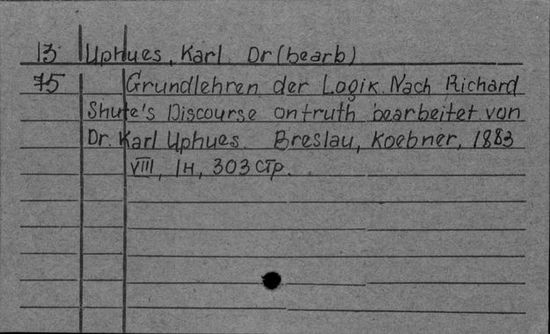 13 Uphues, Karl Dr (bearb)
75 Grundlehren der Logik. Nach Richard
Shute's Discourse on truth bearbeitet von
Dr. Karl Uphues. Breslau, Koebner, 1883
VIII, 1н, 303 стр.